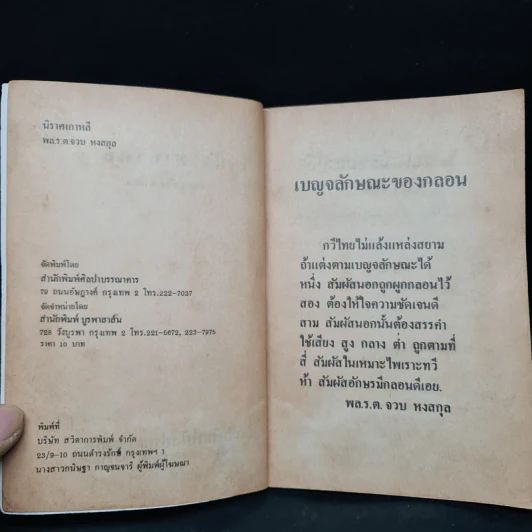 นิราศเกาหลี
พล.ร.ต.จวบ หงสกุล
จัดพิมพ์โดย
สำนักพิมพ์ศิลปาบรรณาคาร
79 ถนนอัษฎางค์ กรุงเทพ 2 โทร.222-7037
จัดจำหน่ายโดย
สำนักพิมพ์ บูรพาสาส์น
728 วังบูรพา กรุงเทพ 2 โทร.221-5672, 223-7975
ราคา 10 บาท
พิมพ์ที่
บริษัท สวิตาการพิมพ์ จำกัด
23/9-10 ถนนดำรงรักษ์ กรุงเทพฯ 1
นางสาวกนิษฐา กาญจนจารี ผู้พิมพ์ผู้โฆษณา
เบญจลักษณะของกลอน
กวีไทยไม่แล้งแหล่งสยาม
ถ้าแต่งตามเบญจลักษณะได้
หนึ่ง สัมผัสนอกถูกผูกกลอนไว้
สอง ต้องให้ใจความชัดเจนดี
สาม สัมผัสนอกนั้นต้องสรรคำ
ใช้เสียง สูง กลาง ต่ำ ถูกตามที่
สี่ สัมผัสในเหมาะไพเราะทวี
ห้า สัมผัสอักษรมีกลอนดีเอย.
พล.ร.ต.จวบ หงสกุล